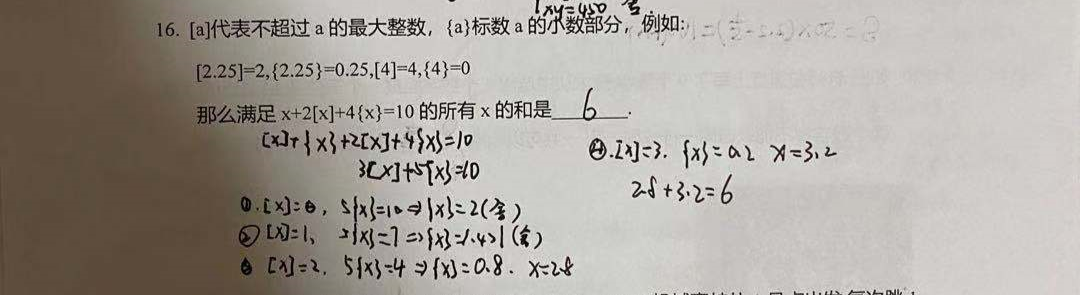 xy=450 舍
16. [a]代表不超过 a 的最大整数，{a}标数 a 的小数部分，例如:
[2.25]=2,{2.25}=0.25,[4]=4,{4}=0
那么满足 x+2[x]+4{x}=10 的所有 x 的和是 6 .
[x]+{x}+2[x]+4{x}=10
3[x]+5{x}=10
①.[x]=0, 5{x}=10⇒{x}=2(舍)
②[x]=1, {x}=7⇒{x}=1.4>1(舍)
③ [x]=2, 5{x}=4⇒{x}=0.8. x=2.8
④.[x]=3. {x}=0.2 x=3.2
2.8+3.2=6